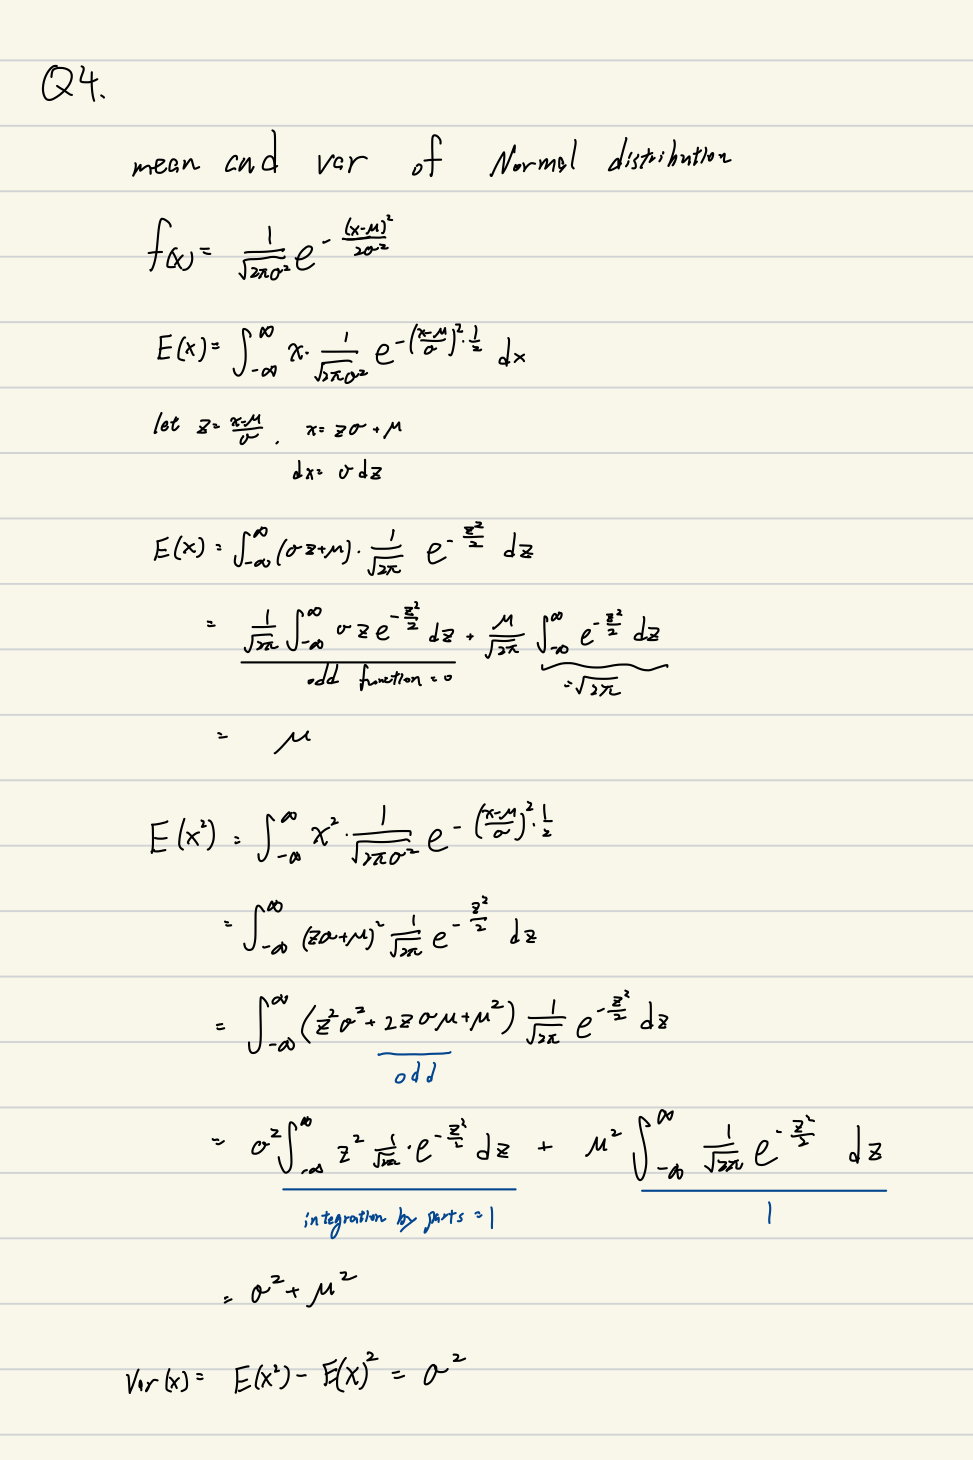 Q4.
mean and var of Normal distribution
f(x) = 1/√(2πσ²) e^(-(x-μ)²/2σ²)
E(x) = ∫_{-∞}^{∞} x · 1/√(2πσ²) e^(-((x-μ)/σ)² · 1/2) dx
let z = (x-μ)/σ , x = zσ + μ
dx = σ dz
E(x) = ∫_{-∞}^{∞} (σz+μ) · 1/√(2π) e^(-z²/2) dz
= 1/√(2π) ∫_{-∞}^{∞} σ z e^(-z²/2) dz + μ/√(2π) ∫_{-∞}^{∞} e^(-z²/2) dz
odd function = 0 = √(2π)
= μ
E(x²) = ∫_{-∞}^{∞} x² · 1/√(2πσ²) e^(-((x-μ)/σ)² · 1/2)
= ∫_{-∞}^{∞} (zσ+μ)² 1/√(2π) e^(-z²/2) dz
= ∫_{-∞}^{∞} (z²σ² + 2zσμ + μ²) 1/√(2π) e^(-z²/2) dz
odd
= σ² ∫_{-∞}^{∞} z² 1/√(2π) · e^(-z²/2) dz + μ² ∫_{-∞}^{∞} 1/√(2π) e^(-z²/2) dz
integration by parts = 1 1
= σ² + μ²
Var(x) = E(x²) - E(x)² = σ²